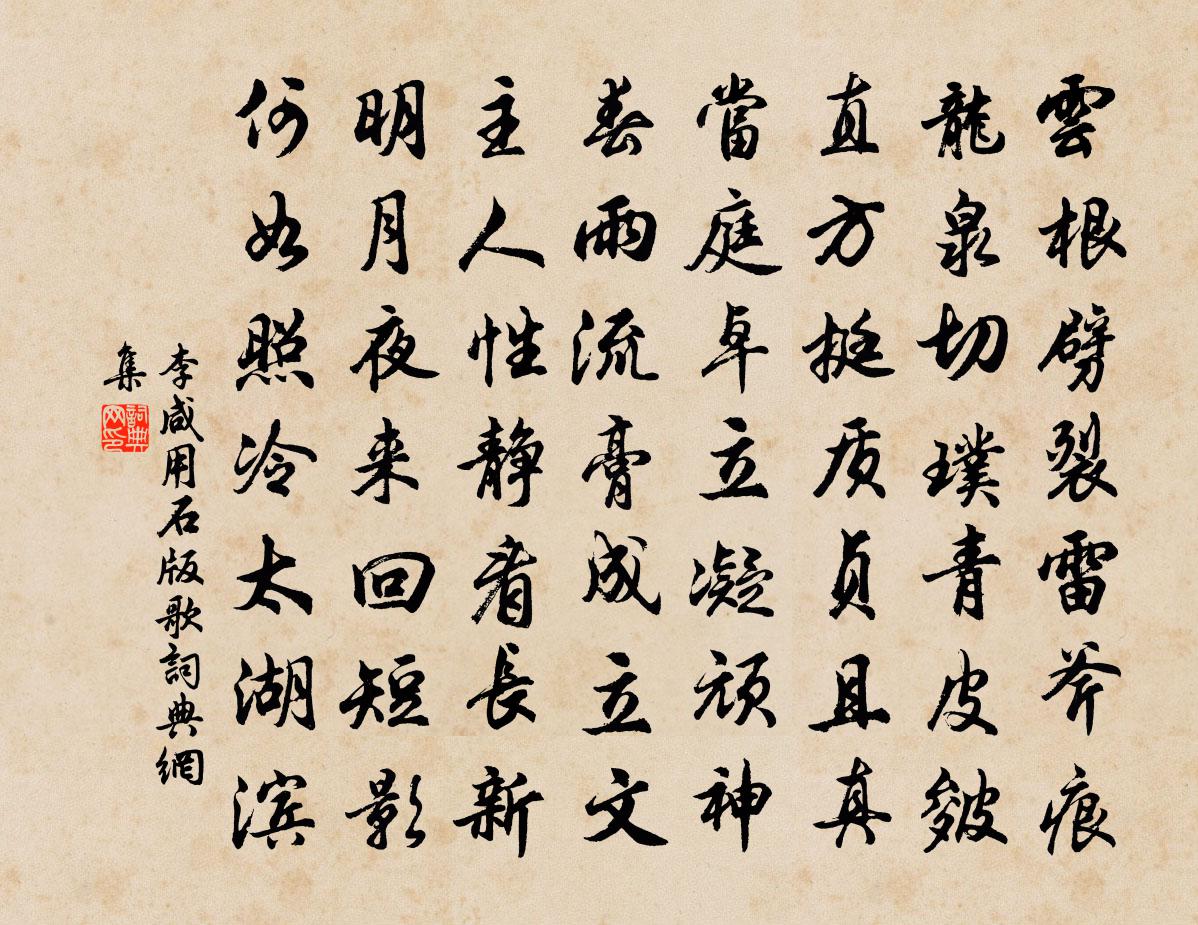 雲根劈裂雷斧痕
龍泉切璞青皮皴
直方挺质贞且真
當庭卓立凝顽神
春雨流膏成立文
主人性静看長新
明月夜来回短影
何如照冷太湖滨
李咸用石版歌詞典網
集
詞典
网印